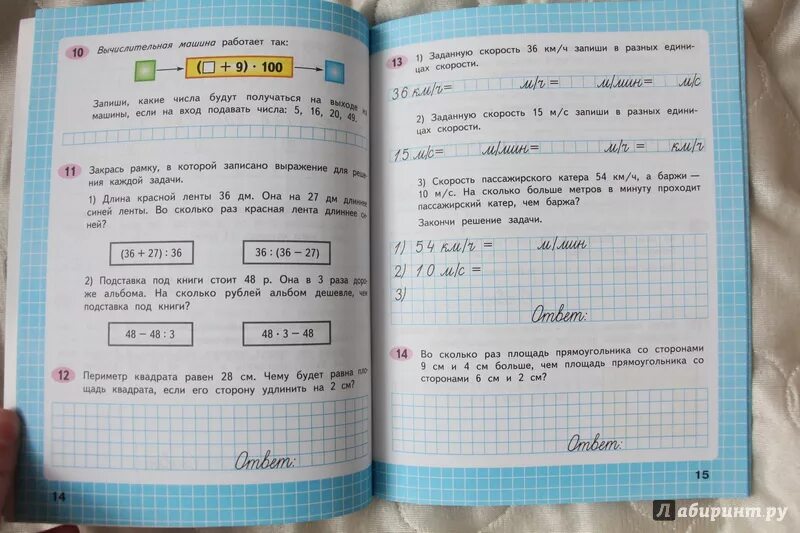 10 Вычислительная машина работает так:
(□ + 9) · 100
Запиши, какие числа будут получаться на выходе из
машины, если на вход подавать числа: 5, 16, 20, 49.
11 Закрась рамку, в которой записано выражение для реше-
ния каждой задачи.
1) Длина красной ленты 36 дм. Она на 27 дм длиннее
синей ленты. Во сколько раз красная лента длиннее си-
ней?
(36 + 27) : 36
36 : (36 − 27)
2) Подставка под книги стоит 48 р. Она в 3 раза доро-
же альбома. На сколько рублей альбом дешевле, чем
подставка под книги?
48 − 48 : 3
48 · 3 − 48
12 Периметр квадрата равен 28 см. Чему будет равна пло-
щадь квадрата, если его сторону удлинить на 2 см?
Ответ:
14
13 1) Заданную скорость 36 км/ч запиши в разных едини-
цах скорости.
36 км/ч= м/ч= м/мин= м/с
2) Заданную скорость 15 м/с запиши в разных едини-
цах скорости.
15 м/с= м/мин= м/ч= км/ч
3) Скорость пассажирского катера 54 км/ч, а баржи —
10 м/с. На сколько больше метров в минуту проходит
пассажирский катер, чем баржа?
Закончи решение задачи.
1) 54 км/ч = м/мин
2) 10 м/с =
3)
Ответ:
14 Во сколько раз площадь прямоугольника со сторонами
9 см и 4 см больше, чем площадь прямоугольника со
сторонами 6 см и 2 см?
Ответ:
15
Лабиринт.ру